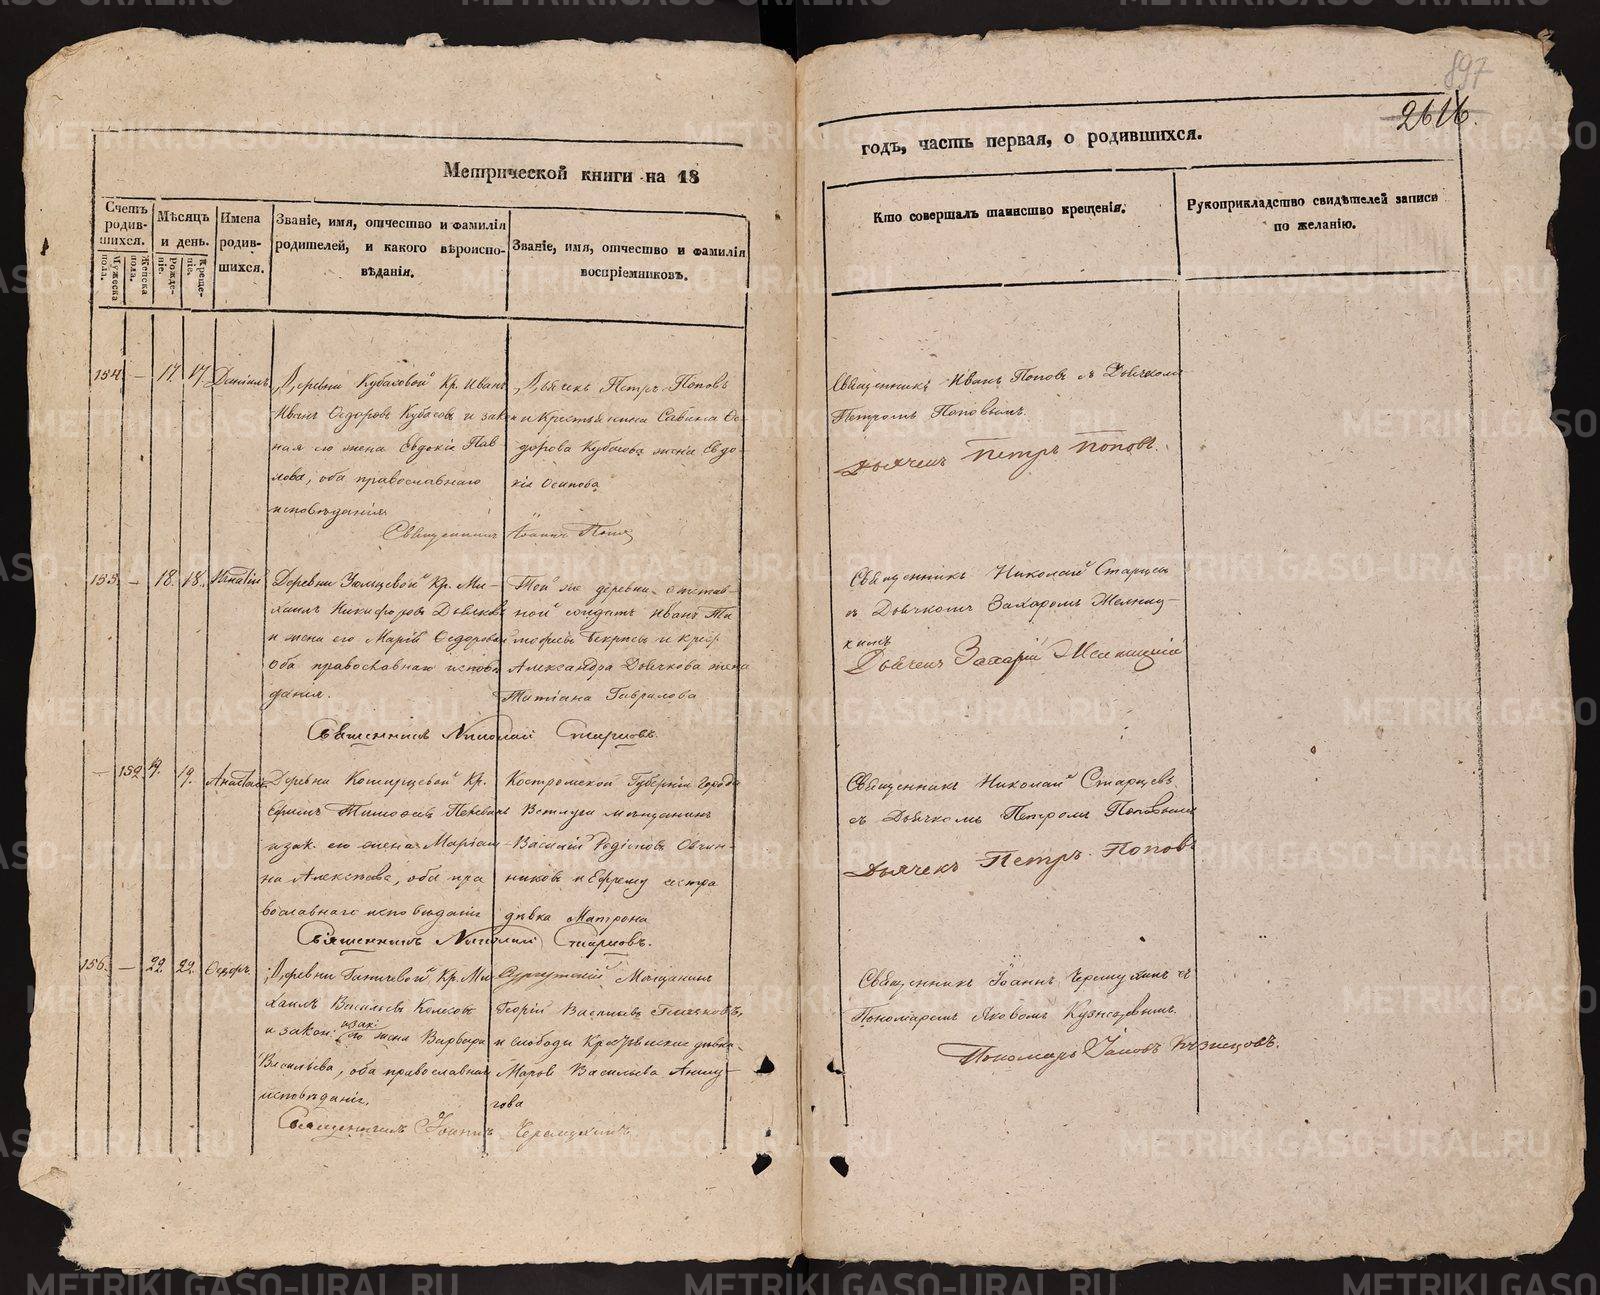 897
2616.
Метрической книги на 18
годъ, часть первая, о родившихся.
Счетъ родившихся.
Мужеска пола.
Женска пола.
Мѣсяцъ и день.
Рожденіе.
Крещеніе.
Имена родившихся.
Званіе, имя, отчество и фамилія родителей, и какого вѣроисповѣданія.
Званіе, имя, отчество и фамилія воспріемниковъ.
Кто совершалъ таинство крещенія.
Рукоприкладство свидѣтелей записи по желанію.
154. — 17. 17 Даніилъ
Деревни Кубасовой Кр. Иванъ
Иванъ Ѳедоровъ Кубасовъ и закон
ная его жена Евдокія Пав
лова, оба православнаго
исповѣданія
Дьячекъ Петръ Поповъ
и Крестьянина Ѳе
дорова Кубасова жена Евдо
кія Осипова
Священникъ Іоаннъ Поповъ
Священникъ Иванъ Поповъ съ Дьячкомъ
Петромъ Поповымъ.
Дьячекъ Петръ Поповъ.
155. — 18. 18. Игнатій
Деревни Кр. Ми-
хаилъ Никифоровъ Дьячковъ
и жена его Марія Ѳедорова
оба православнаго исповѣ
данія.
Той же деревни отстав
ной солдатъ Иванъ Ти
мофеевъ и крест.
Александра Дьячкова жена
Татіана Гаврилова
Священникъ Николай Старцовъ.
Священникъ Николай Старцевъ
съ Дьячкомъ Захаромъ
кимъ
Дьячекъ Захарій
— 152. 19. 19. Анастасія
Деревни Кр.
Ефимъ Тимофеевъ
и зак. его жена Маріам-
на Алексѣева, оба пра
вославнаго исповѣданія
Костромской Губерніи города
Ветлуги мѣщанинъ
Василій Родіоновъ Овчин-
никовъ и Ефрему сестра
дѣвка Матрона
Священникъ Николай Старцовъ.
Священникъ Николай Старцевъ
съ Дьячкомъ Петромъ Поповымъ
Дьячекъ Петръ Поповъ
156. — 22. 22. Ѳедоръ
Деревни Кр. Ми
хаилъ Васильевъ
и закон: его жена Варвара
Васильева, оба православнаго
исповѣданія.
Мѣщанинъ
Георгій Васильевъ
и слободы дѣвка
Васильева
гова
Священникъ Іоаннъ Черемухинъ
Священникъ Іоаннъ Черемухинъ съ
Пономаремъ Яковомъ Кузнецовымъ.
Пономарь Іаковъ Кузнецовъ.
METRIKI.GASO-URAL.RU